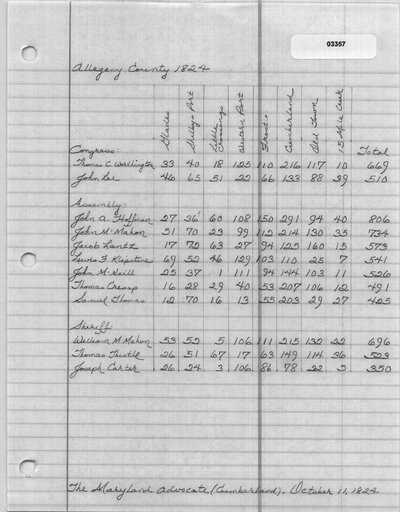 03357
Allegany County 1824
Glades
Selbys Port
Little Crossings
Western Port
Frosts
Cumberland
Old Town
15 Mile Creek
Congress: Total
Thomas C. Worthington 33 40 18 125 110 216 117 10 669
John Lee 46 65 51 22 66 133 88 39 510
Assembly:
John A. Hoffman 27 36 60 108 150 291 94 40 806
John McMahon 51 70 23 99 112 214 130 35 734
Jacob Lantz 17 72 63 27 94 125 160 15 573
Lewis F. Klipstine 69 52 46 129 103 110 25 7 541
John McNeill 25 37 1 111 94 144 103 11 526
Thomas Cresap 16 28 29 40 53 207 106 12 491
Samuel Thomas 12 70 16 13 55 203 29 27 425
Sheriff:
William McMahon 53 52 5 106 111 215 132 22 696
Thomas Thistle 26 51 67 17 63 149 114 36 523
Joseph Carter 26 24 3 106 86 78 22 5 350
The Maryland Advocate (Cumberland). October 11, 1824